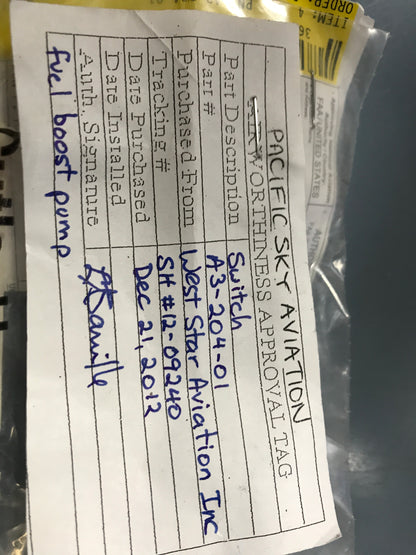 PACIFIC SKY AVIATION
AIRWORTHINESS APPROVAL TAG
Part Description Switch
Part # A3-204-01
Purchased From West Star Aviation Inc
Tracking # SH #12-09240
Date Purchased Dec 21, 2012
Date Installed
Auth. Signature
fuel boost pump
ITEM: 4
ORDER:
FAA/UNITED STATES